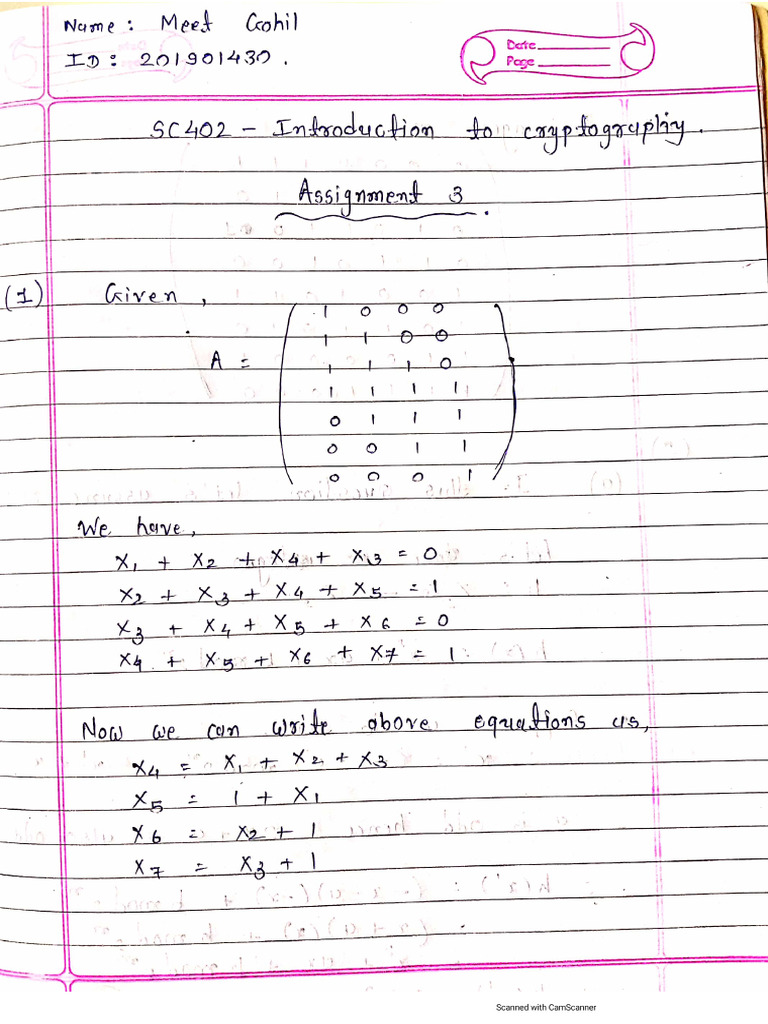 Name: Meet Gohil
ID: 201901430.
Date
Page
SC402 - Introduction to cryptography.
Assignment 3.
(1) Given,
A =
1 0 0 0
1 1 0 0
1 1 1 0
1 1 1 1
0 1 1 1
0 0 1 1
0 0 0 1
We have,
x1 + x2 + x4 + x3 = 0
x2 + x3 + x4 + x5 = 1
x3 + x4 + x5 + x6 = 0
x4 + x5 + x6 + x7 = 1
Now we can write above equations as,
x4 = x1 + x2 + x3
x5 = 1 + x1
x6 = x2 + 1
x7 = x3 + 1
Scanned with CamScanner